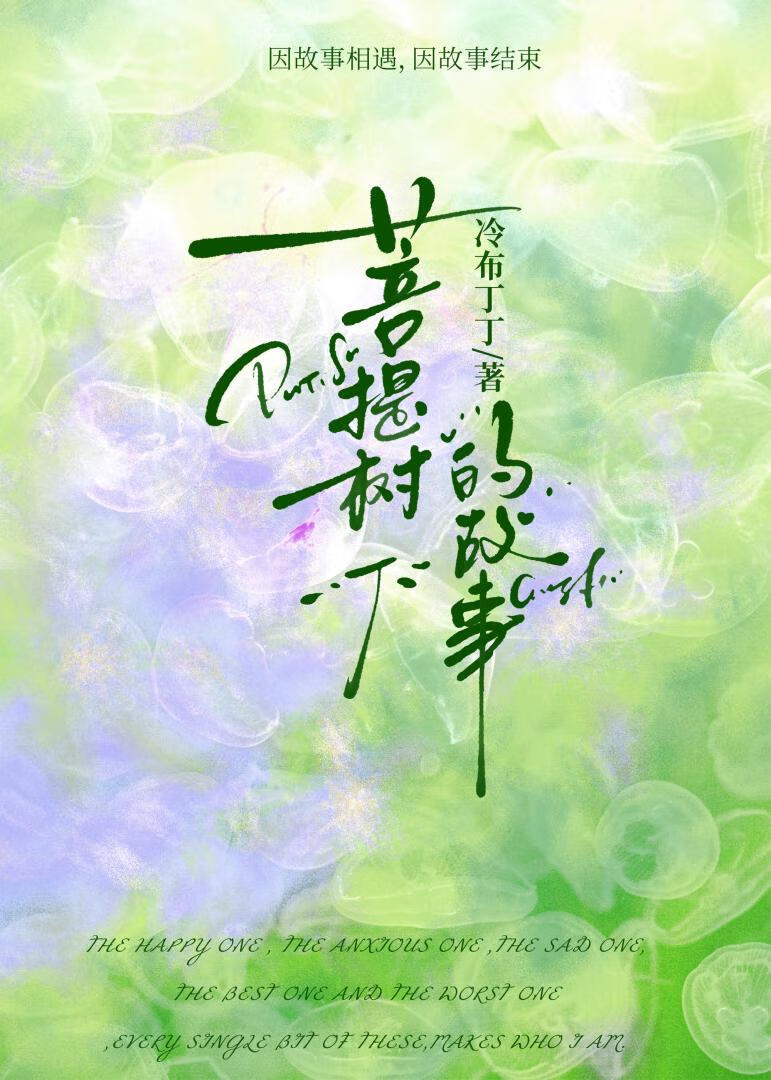 因故事相遇, 因故事结束
菩提树下
的故事
冷布丁丁/著
PUT.SU
THE HAPPY ONE , THE ANXIOUS ONE ,THE SAD ONE,
THE BEST ONE AND THE WORST ONE
,EVERY SINGLE BIT OF THESE,MAKES WHO I AM.